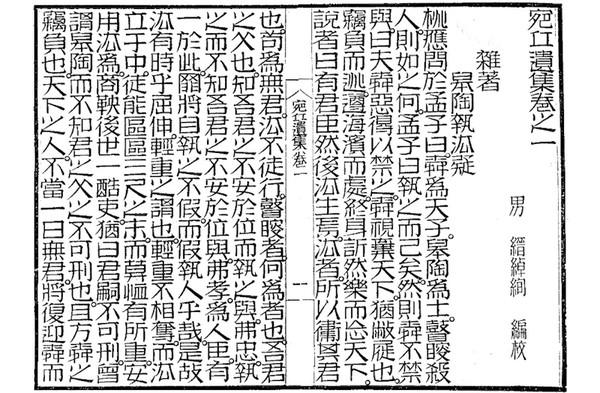 宛丘遺集卷之一
男 縉綽絢 編校
雜著
皐陶執法疑
桃應問於孟子曰舜爲天子。皐陶爲士。瞽瞍殺
人則如之何。孟子曰執之而已矣。然則舜不禁
與曰夫舜惡得以禁之。舜視棄天下猶敝屣也。
竊負而逃遵海濱而處終身訢然樂而忘天下。
說者曰有君臣然後法生焉。法者所以肅吾君
宛丘遺集卷一
一
也。苟爲無君。法不徒行。瞽瞍者。何爲者也。吾君
之父也。知吾君之不安於位而執之與。弗忠。執
之而不知吾君之不安於位與。弗孝。爲人臣有
一於此將自執之不假而假執人乎哉。是故
法有時乎屈伸輕重之謂也。輕重不相奪而法
立于中。徒能區區三尺之末。而莫有所重。安
用法爲。商鞅後世一酷吏。猶曰君嗣不可刑。曾
謂皐陶而不知君之父之不可刑也。且方舜之
竊負也。天下之人。不當一日無君。將復迎舜而